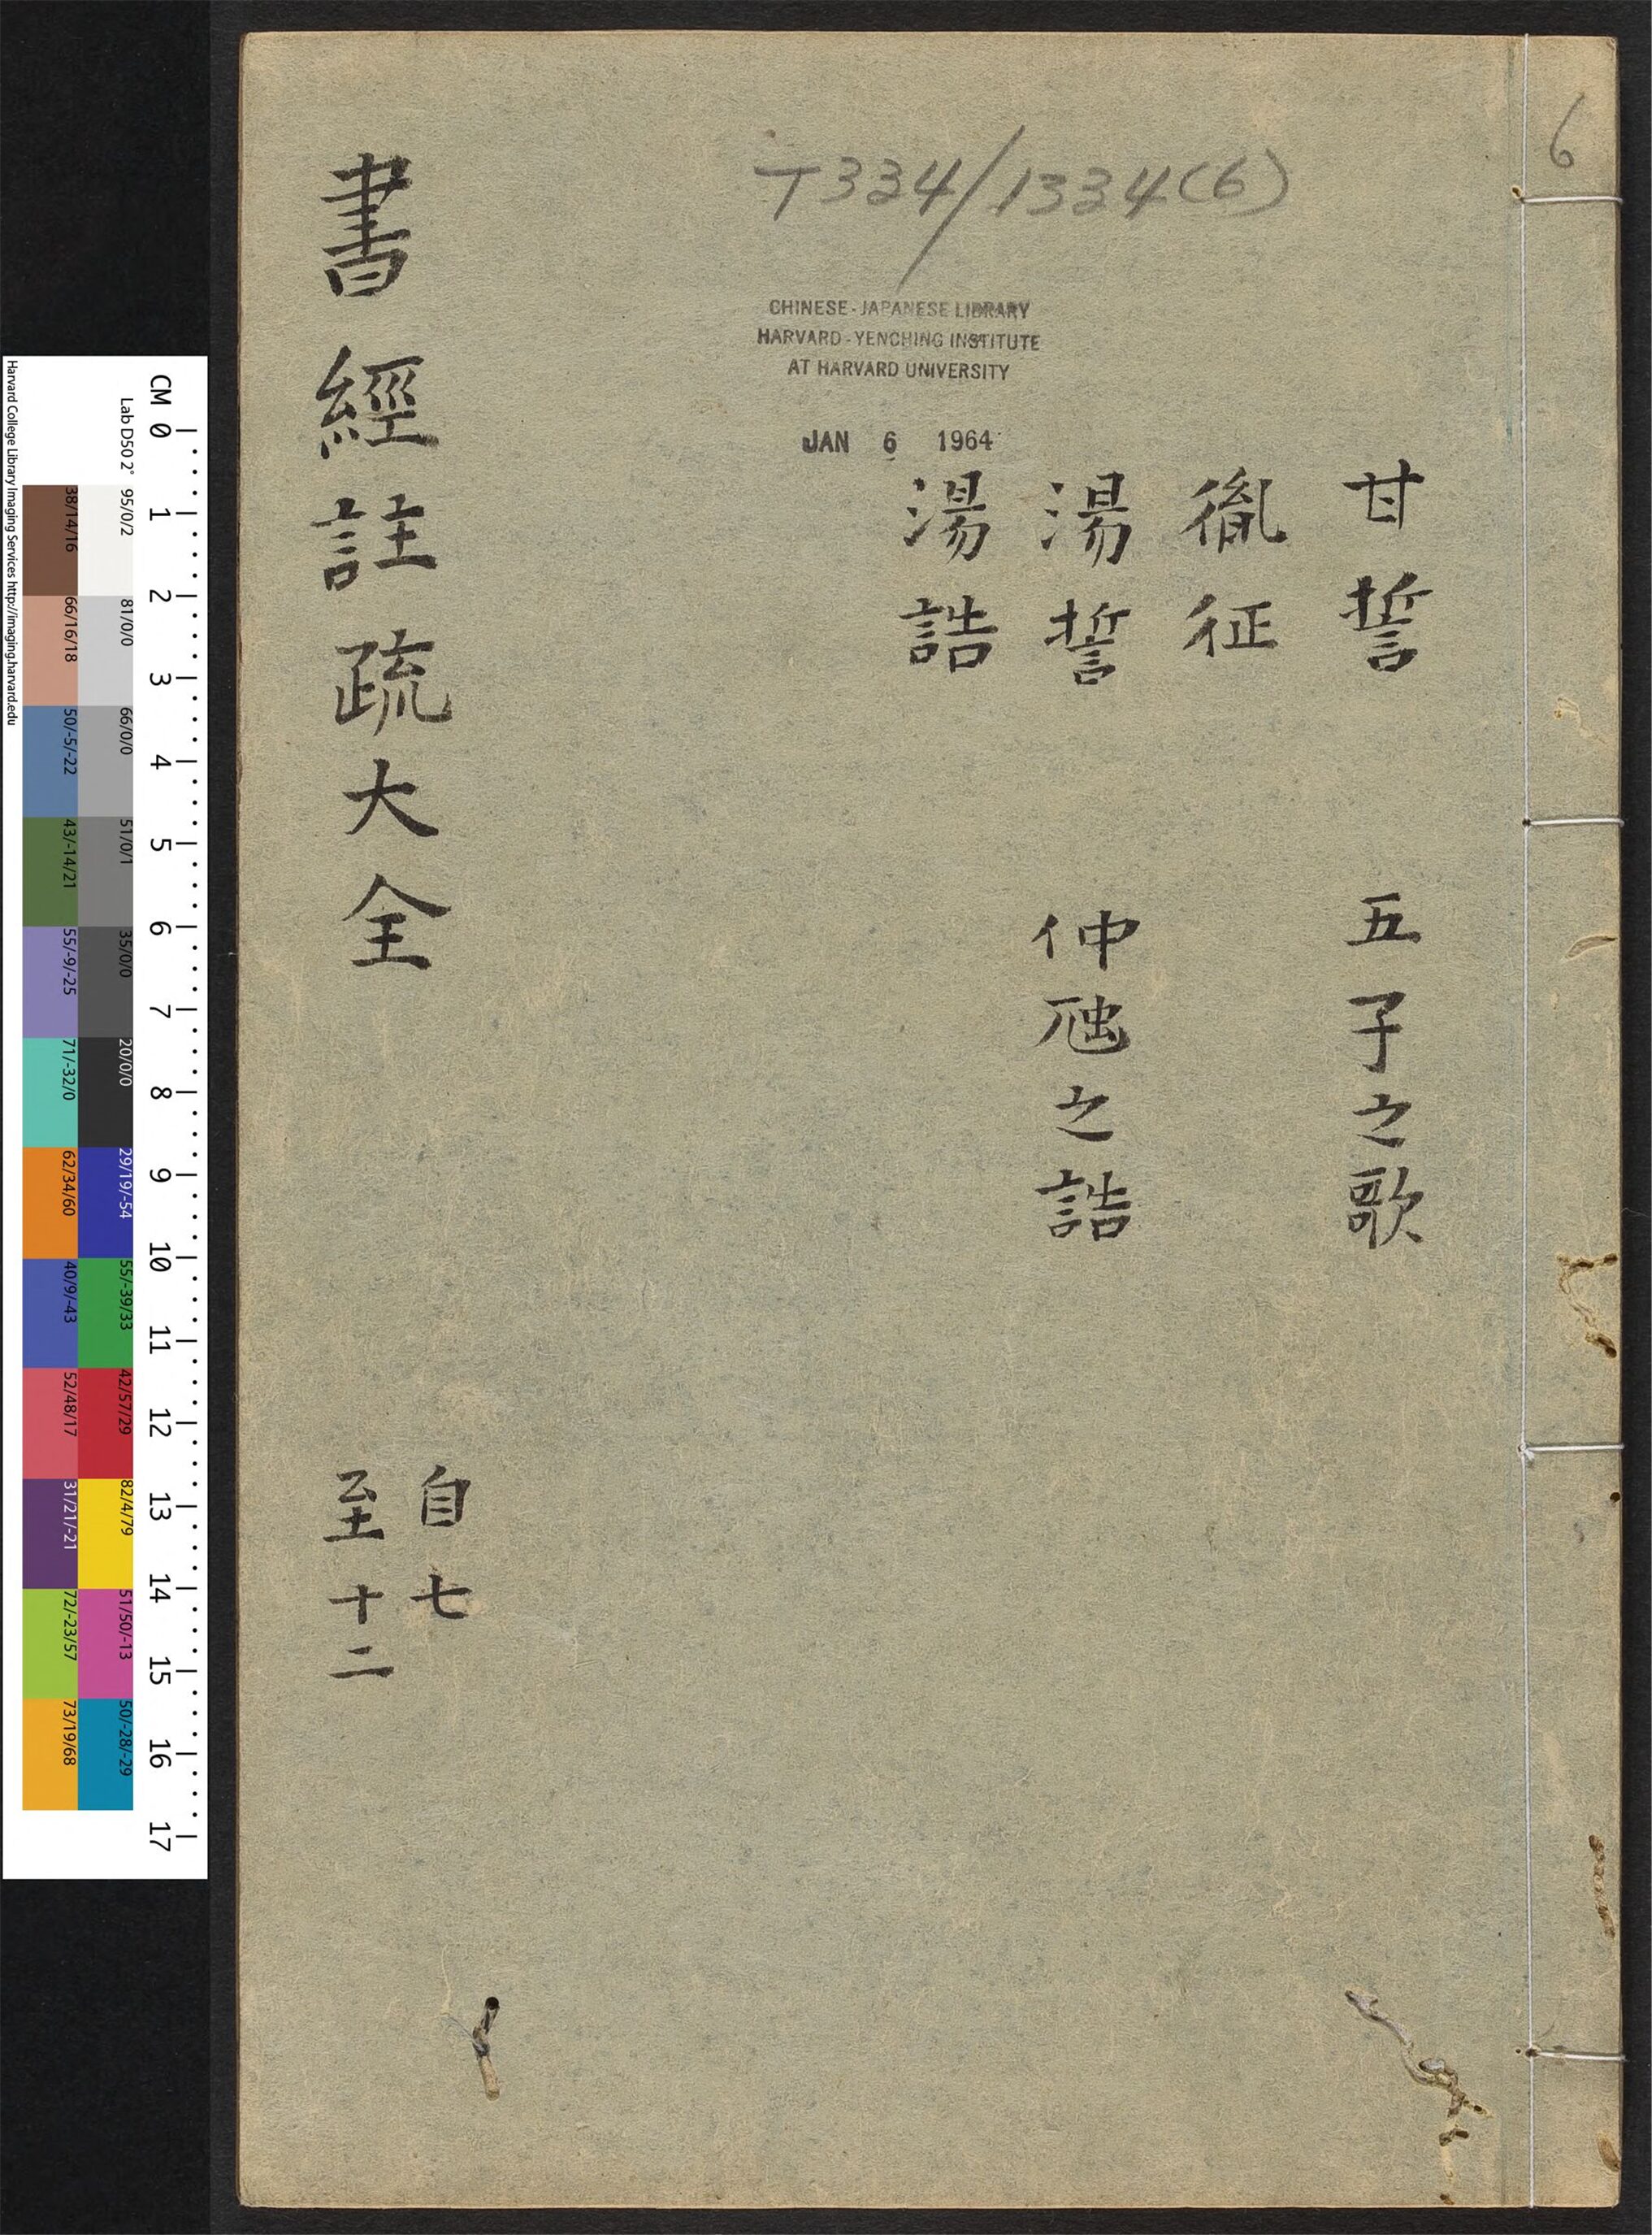 6
T334/1334(6)
CHINESE-JAPANESE LIBRARY
HARVARD-YENCHING INSTITUTE
AT HARVARD UNIVERSITY
JAN 6 1964
甘誓 五子之歌
胤征
湯誓 仲虺之誥
湯誥
書經註疏大全
自七
至十二
CM 0 1 2 3 4 5 6 7 8 9 10 11 12 13 14 15 16 17
Lab D50 2° 95/0/2 81/0/0 66/0/0 51/0/1 35/0/0 20/0/0 29/19/-54 55/-39/33 42/57/29 82/4/79 51/50/-13 50/-28/-29
38/14/16 66/16/18 50/-5/-22 43/-14/21 55/-9/-25 71/-32/0 62/34/60 40/9/-43 52/48/17 31/21/-21 72/-23/57 73/19/68
Harvard College Library Imaging Services http://imaging.harvard.edu